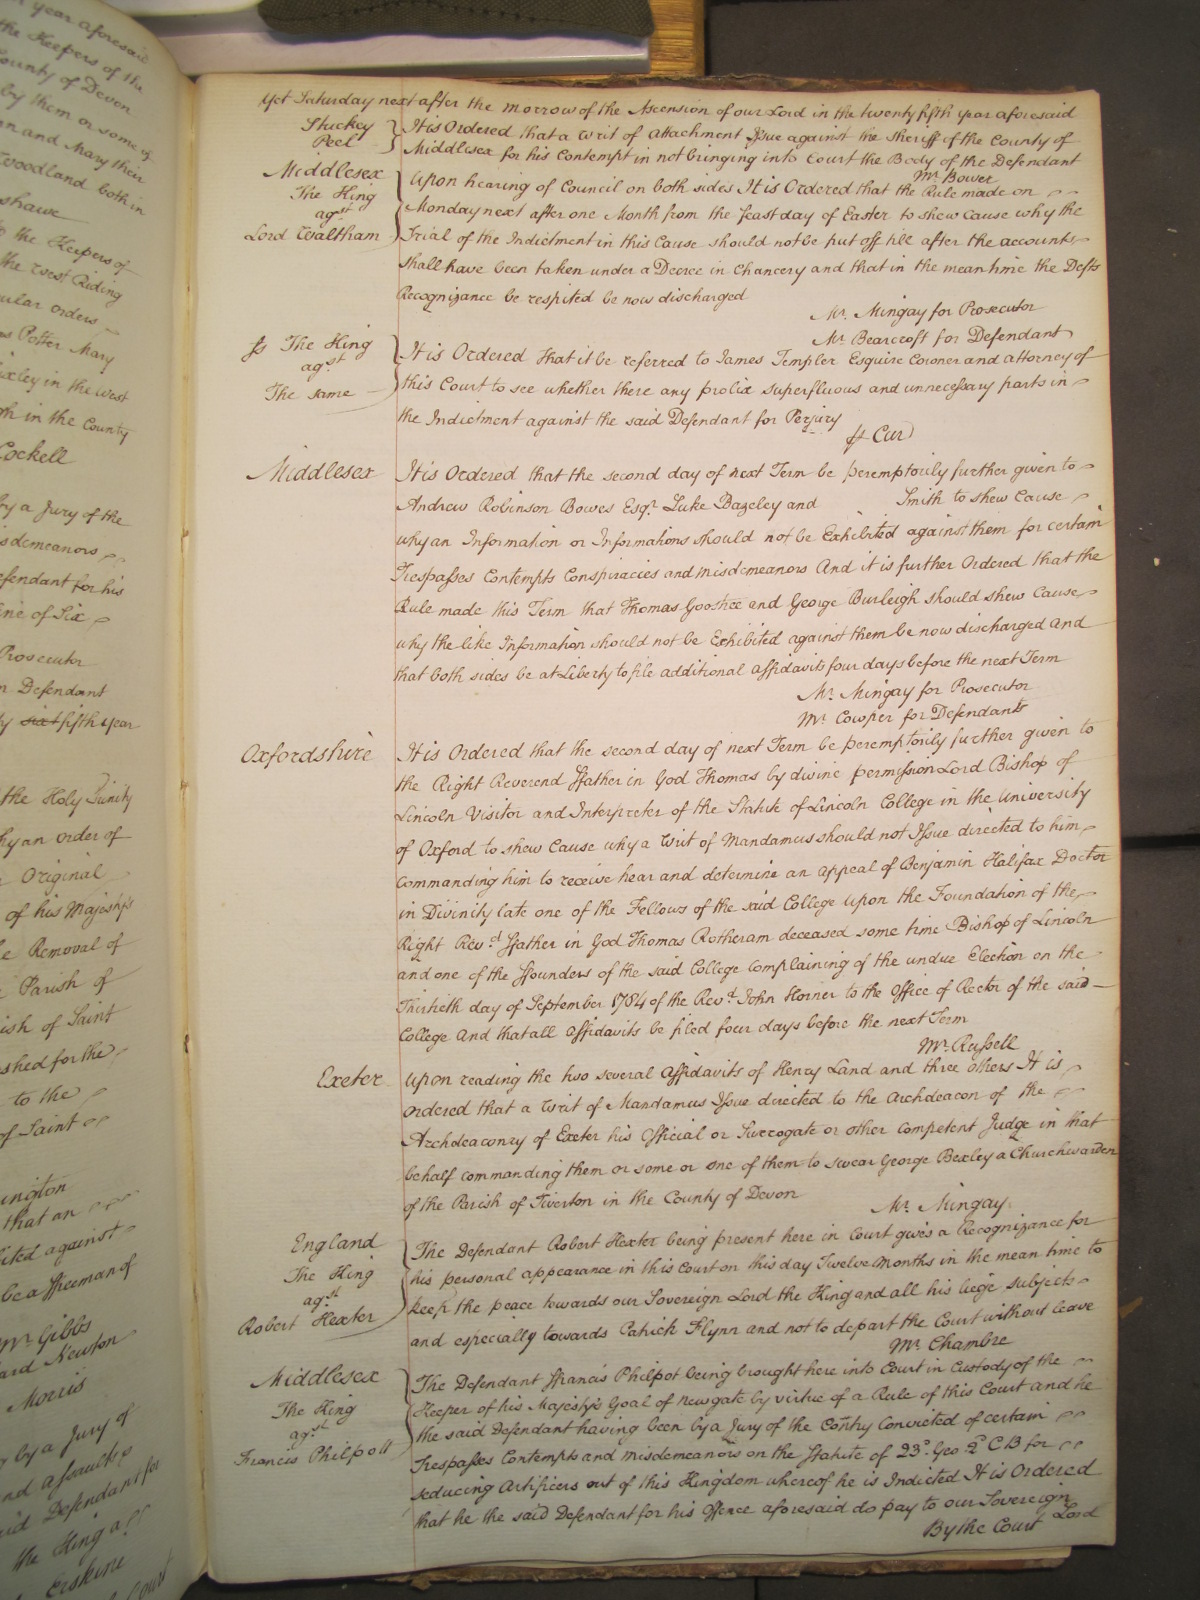 r year aforesaid
the Keepers of the
County of Devon
by them or some of
en and Mary their
Woodland both in
shawe
to the Keepers of
the West Riding
cular orders
s Potter Mary
ixley in the West
gh in the County
Cockell
by a Jury of the
isdemeanors
efendant for his
ine of Six
Prosecutor
n Defendant
ty sixt fifth year
the Holy Trinity
hy an order of
Original
of his Majestys
e Removal of
Parish of
ish of Saint
shed for the
to the
of Saint
ington
that an
ited against
be a ffreeman of
Mr. Gibbs
ard Newton
Morris
by a Jury of
nd assaults
aid Defendant for
the King agt
Erskine
Court
Yet Saturday next after the Morrow of the Ascension of our Lord in the twenty fifth year aforesaid
Stuckey
Peel
It is Ordered that a Writ of Attachment Issue against the Sheriff of the County of
Middlesex for his Contempt in not bringing into Court the Body of the Defendant
Mr. Bower
Middlesex
The King
agst
Lord Waltham
Upon hearing of Council on both sides It is Ordered that the Rule made on
Monday next after one Month from the feast day of Easter to shew cause why the
Trial of the Indictment in this Cause should not be put off till after the accounts
shall have been taken under a Decree in Chancery and that in the mean time the Defts
Recognizance be respited be now discharged
Mr. Mingay for Prosecutor
Mr. Bearcroft for Defendant
The King
agst
The same
It is Ordered that it be referred to James Templer Esquire Coroner and attorney of
this Court to see whether there any prolix superfluous and unnecessary parts in
the Indictment against the said Defendant for Perjury
Cur
Middlesex
It is Ordered that the second day of next Term be peremptorily further given to
Andrew Robinson Bowes Esqr. Luke Bazeley and Smith to shew Cause
why an Information or Informations should not be Exhibited against them for certain
Trespasses Contempts Conspiracies and Misdemeanors And it is further Ordered that the
Rule made this Term that Thomas Goostree and George Burleigh should shew Cause
why the like Information should not be Exhibited against them be now discharged And
that both sides be at Liberty to file additional affidavits four days before the next Term
Mr. Mingay for Prosecutor
Mr. Cowper for Defendants
Oxfordshire
It is Ordered that the second day of next Term be peremptorily further given to
the Right Reverend ffather in God Thomas by divine permission Lord Bishop of
Lincoln Visitor and Interpreter of the Statute of Lincoln College in the University
of Oxford to shew Cause why a Writ of Mandamus should not Issue directed to him
commanding him to receive hear and determine an appeal of Benjamin Halifax Doctor
in Divinity late one of the Fellows of the said College upon the Foundation of the
Right Revd. ffather in God Thomas Rotheram deceased some time Bishop of Lincoln
and one of the ffounders of the said College Complaining of the undue Election on the
Thirtieth day of September 1784 of the Revd. John Horner to the Office of Rector of the said
College And that all affidavits be filed four days before the next Term
Mr. Russell
Exeter
Upon reading the two several affidavits of Henry Land and three others It is
Ordered that a Writ of Mandamus Issue directed to the Archdeacon of the
Archdeaconry of Exeter his Official or Surrogate or other competent Judge in that
behalf commanding them or some or one of them to swear George Bexley a Churchwarden
of the Parish of Tiverton in the County of Devon
Mr. Mingay
England
The King
agst
Robert Hexter
The Defendant Robert Hexter being present here in Court gives a Recognizance for
his personal appearance in this Court on this day Twelve Months in the mean time to
keep the peace towards our Sovereign Lord the King and all his liege subjects
and especially towards Patrick Flynn and not to depart the Court without leave
Mr. Chambre
Middlesex
The King
agst
Francis Philpott
The Defendant ffrancis Philpot being brought here into Court in Custody of the
Keeper of his Majestys Goal of Newgate by virtue of a Rule of this Court and he
the said Defendant having been by a Jury of the Contry Convicted of certain
Trespasses Contempts and Misdemeanors on the Statute of 23d. Geo 2d C 13 for
seducing Artificers out of this Kingdom whereof he is Indicted It is Ordered
that he the said Defendant for his Offence aforesaid do pay to our Sovereign
By the Court Lord